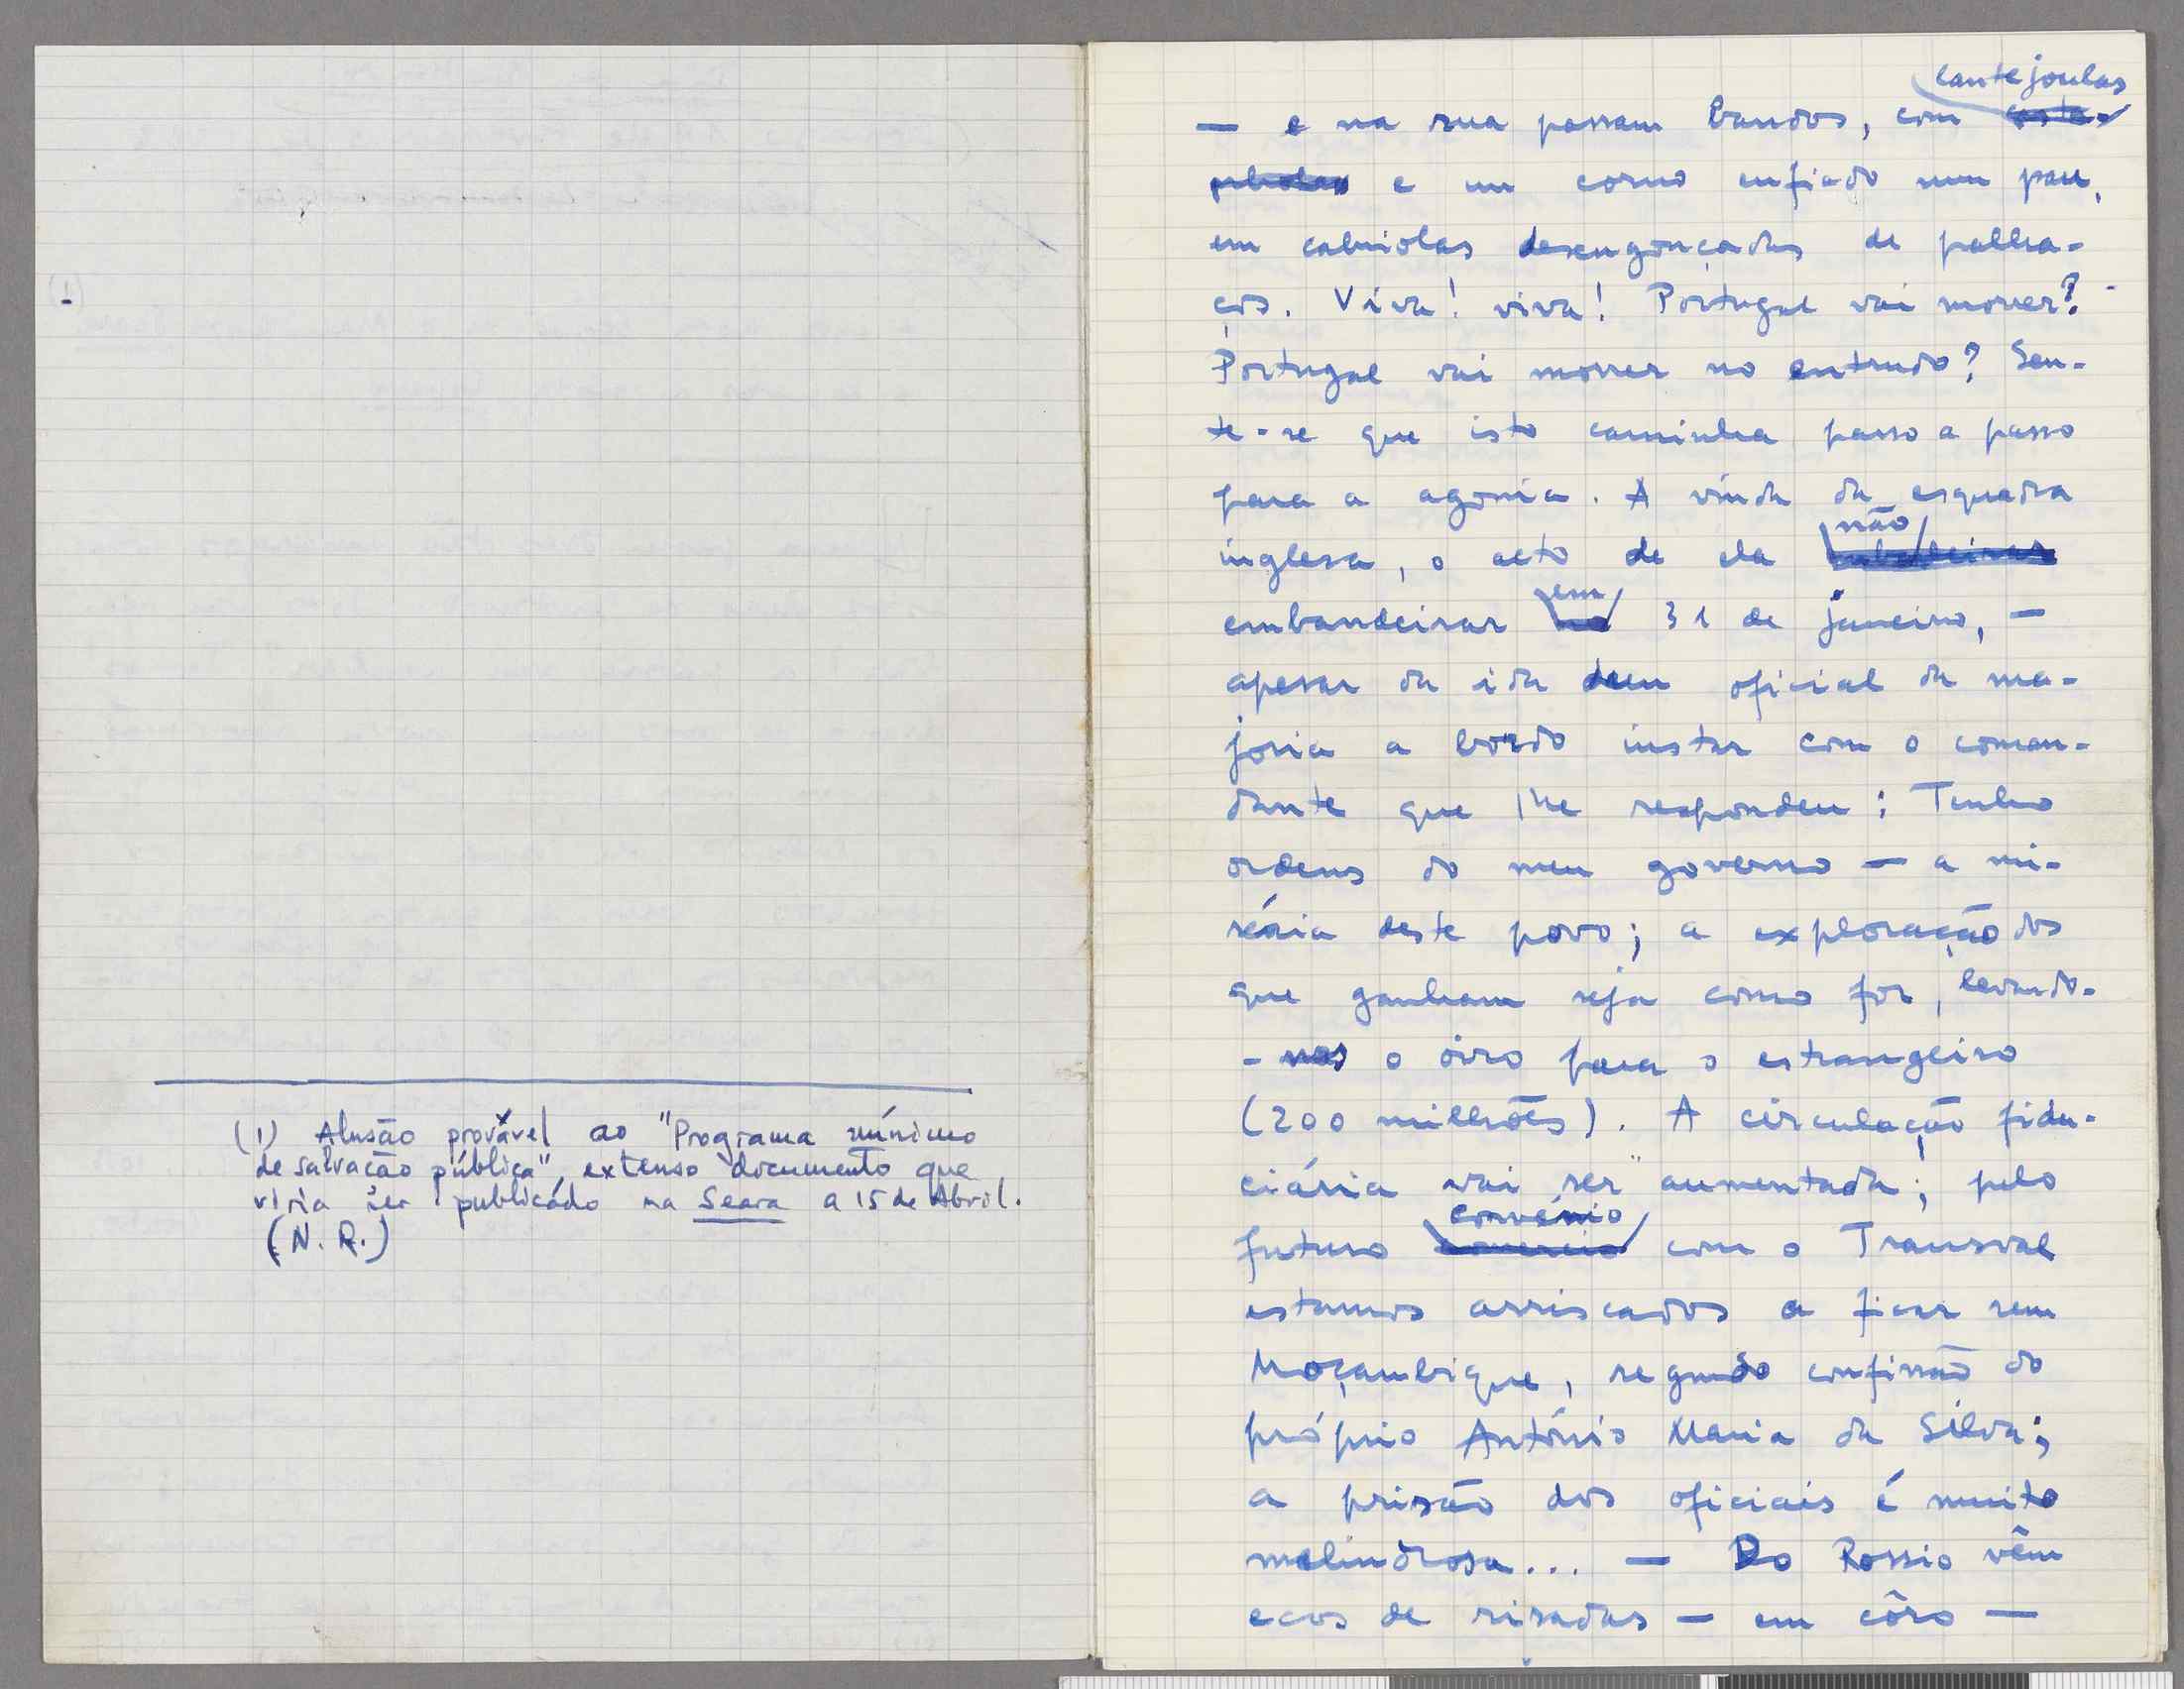 (1)
(1) Alusão provável ao "Programa mínimo
de salvação pública", extenso documento que
viria ser publicado na Seara a 15 de Abril.
(N. R.)
cantejoulas
— e na rua passam bandos, com
e um corno enfiado num pau,
em cabriolas desengonçadas de palha-
ços. Viva! viva! Portugal vai morrer?
Portugal vai morrer no entrudo? Sen-
te-se que isto caminha passo a passo
para a agonia. A vinda da esquadra
não
inglesa, o acto de ela
em
embandeirar no 31 de janeiro, —
apesar da ida dum oficial da ma-
joria a bordo instar com o coman-
dante que lhe respondeu: Tenho
ordens do meu governo — a mi-
séria deste povo; a exploração dos
que ganham seja como fôr, levando-
-nos o oiro para o estrangeiro
(200 milhões). A circulação fidu-
ciária vai ser aumentada; pelo
convénio
futuro comercio com o Transval
estamos arriscados a ficar sem
Moçambique, segundo confissão do
próprio António Maria da Silva;
a prisão dos oficiais é muito
melindrosa... — Do Rossio vêm
ecos de risadas — em côro —